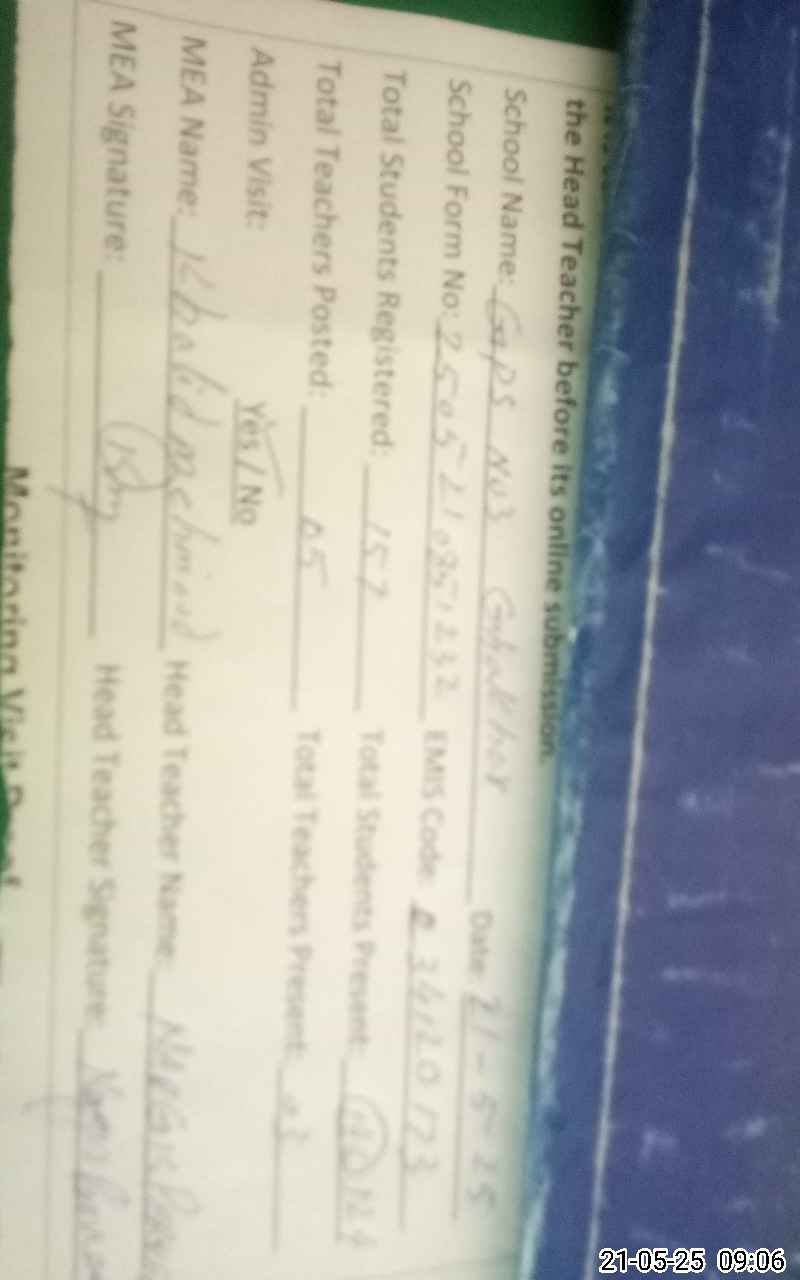 the Head Teacher before its online submission.
School Name: GGPS No3 Date: 21-5-25
School Form No: EMIS Code: 34120173
Total Students Registered: 157 Total Students Present: 124
Total Teachers Posted: 05 Total Teachers Present: 03
Admin Visit: Yes / No
MEA Name: Khalid mehmood Head Teacher Name:
MEA Signature: Head Teacher Signature:
Monitoring Visit Proof
21-05-25 09:06